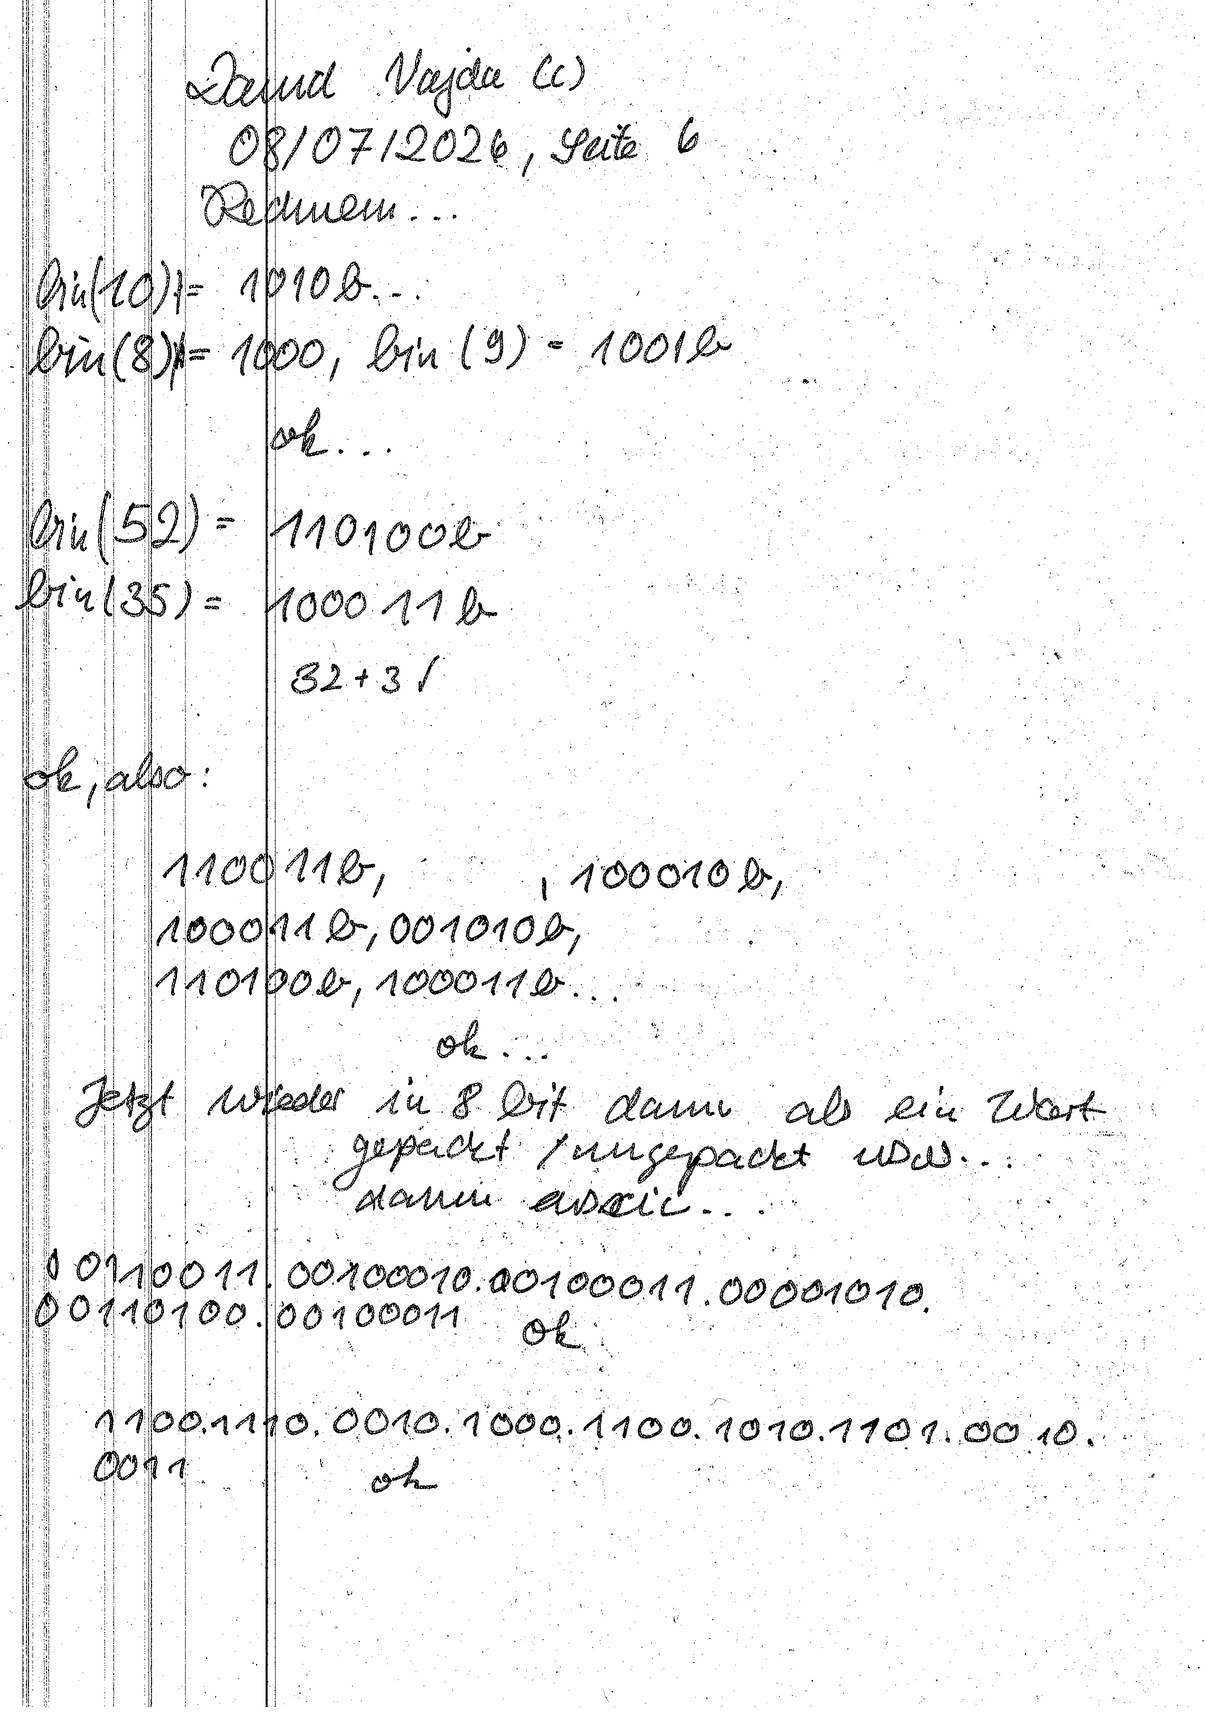 David Vajda (c)
08/07/2026, Seite 6
Rechnen...
bin(10)= 1010b...
bin(8)= 1000, bin(9) = 1001b
ok...
bin(52) = 110100b
bin(35) = 100011b
32+3√
ok, also:
110011b, , 100010b,
100011b, 001010b,
110100b, 100011b...
ok...
Jetzt wieder in 8 bit dann als ein Wort
gepackt / ungepackt usw...
dann ascii...
00110011.00100010.00100011.00001010.
00110100.00100011 ok
1100.1110.0010.1000.1100.1010.1101.0010.
0011 ok